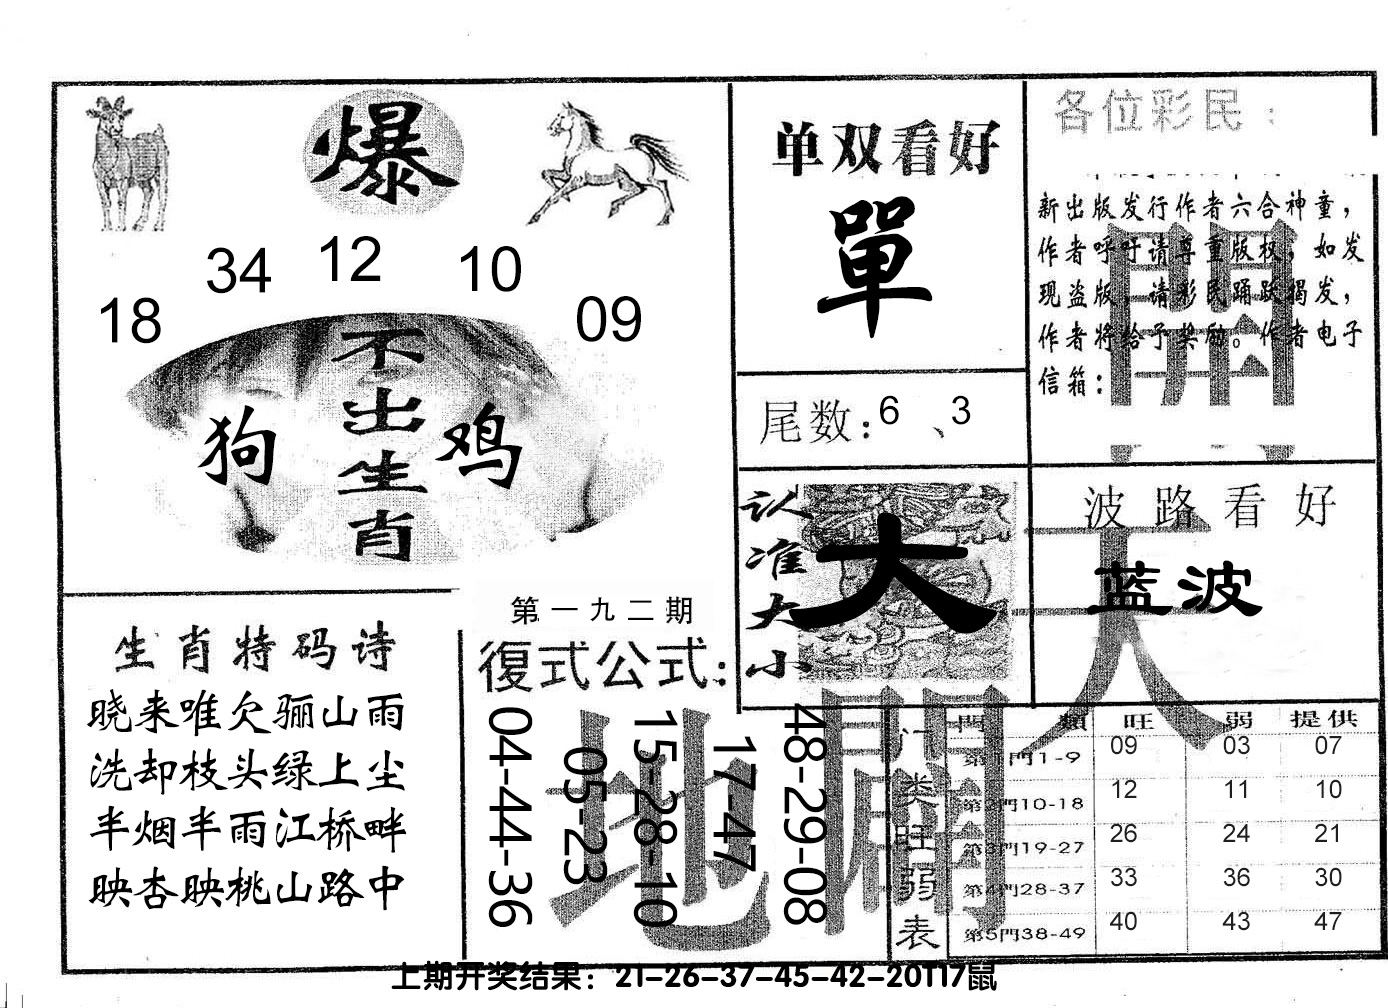 爆
18 34 12 10 09
不出生肖
狗 鸡
单双看好
單
尾数：6、3
认准大小
大
各位彩民：
新出版发行作者六合神童，
作者呼吁请尊重版权，如发
现盗版，请彩民踊跃揭发，
作者将给予奖励。作者电子
信箱：
波路看好
蓝波
天
開
地
閘
生肖特码诗
晓来唯欠骊山雨
洗却枝头绿上尘
半烟半雨江桥畔
映杏映桃山路中
第一九二期
復式公式：
04-44-36
05-23
15-28-10
17-47
48-29-08
门类旺弱表
門 類 旺 弱 提供
第1門1-9 09 03 07
第2門10-18 12 11 10
第3門19-27 26 24 21
第4門28-37 33 36 30
第5門38-49 40 43 47
上期开奖结果：21-26-37-45-42-20T17鼠